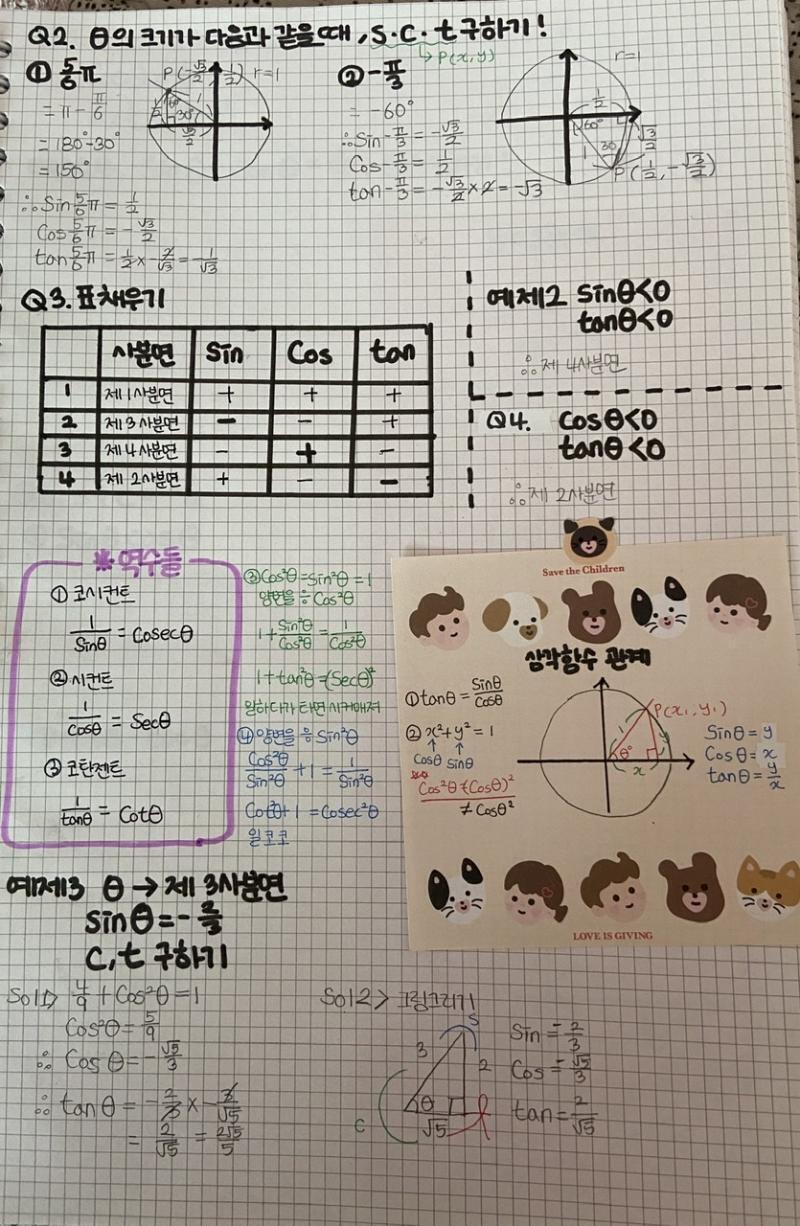 Q2. θ의 크기가 다음과 같을때, S·C·t 구하기!
↳ P(x,y)
① 5/6π
= π - π/6
= 180° - 30°
= 150°
∴ Sin 5/6 π = 1/2
Cos 5/6 π = -√3/2
tan 5/6 π = 1/2 × -2/√3 = -1/√3
P(-√3/2, 1/2) r=1
60°
1
30°
√3/2
② -π/3
= -60°
∴ Sin -π/3 = -√3/2
Cos -π/3 = 1/2
tan -π/3 = -√3/2 × 2 = -√3
r=1
1/2
60°
√3/2
30
1
P(1/2, -√3/2)
Q3. 표채우기
사분면 Sin Cos tan
1 제 1사분면 + + +
2 제 3사분면 - - +
3 제 4사분면 - + -
4 제 2사분면 + - -
예제2 Sinθ<0
tanθ<0
∴ 제 4사분면
Q4. Cosθ<0
tanθ<0
∴ 제 2사분면
※ 역수들
① 코시컨트
1/Sinθ = Cosecθ
② 시컨트
1/Cosθ = Secθ
③ 코탄젠트
1/tanθ = Cotθ
③ Cos²θ=Sin²θ=1
양변을 ÷ Cos²θ
1 + Sin²θ/Cos²θ = 1/Cos²θ
1+tan²θ=(Secθ)²
일하다가 타면 시커매져
④ 양변을 ÷ Sin²θ
Cos²θ/Sin²θ + 1 = 1/Sin²θ
Cot²θ+1 = Cosec²θ
일코코
Save the Children
삼각함수 관계
① tanθ = Sinθ/Cosθ
② x²+y² = 1
↑ ↑
Cosθ Sinθ
Cos²θ≠(Cosθ)²
≠ Cosθ²
P(x₁, y₁)
1
y
θ°
x
Sinθ = y
Cosθ = x
tanθ = y/x
LOVE IS GIVING
예제3 θ → 제 3사분면
Sinθ = -2/3
C, t 구하기
Sol1> 4/9 + Cos²θ = 1
Cos²θ = 5/9
∴ Cosθ = -√5/3
∴ tanθ = -2/3 × -3/√5
= 2/√5 = 2√5/5
Sol2> 그림그리기
S
3
2
θ
√5
C
Sin = -2/3
Cos = -√5/3
tan = 2/√5